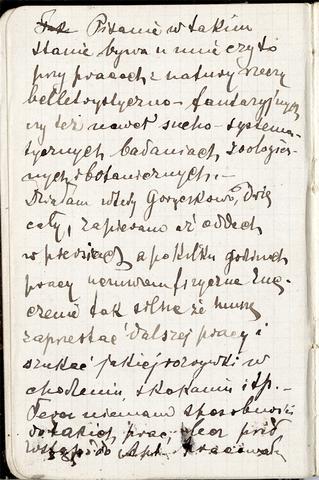 Pisanie w takim
stanie bywa u mnie czy to
przy pracach z natury rzeczy
belletrystyczno-fantazyjnych
czy też nawet sucho-systema-
tycznych badaniach zoologicz-
nych i botanicznych.-
Działam wtedy gorączkowo, drżę
cały, zapierano aż oddech
w piersiach a po kilku godzinach
pracy fizyczne znu-
żenie tak silne że muszę
zaprzestać dalszej pracy i
szukać jakiej rozrywki w
chodzeniu, skakaniu itp.-
Teraz niemam sposobności
do takich prac, lecz przed